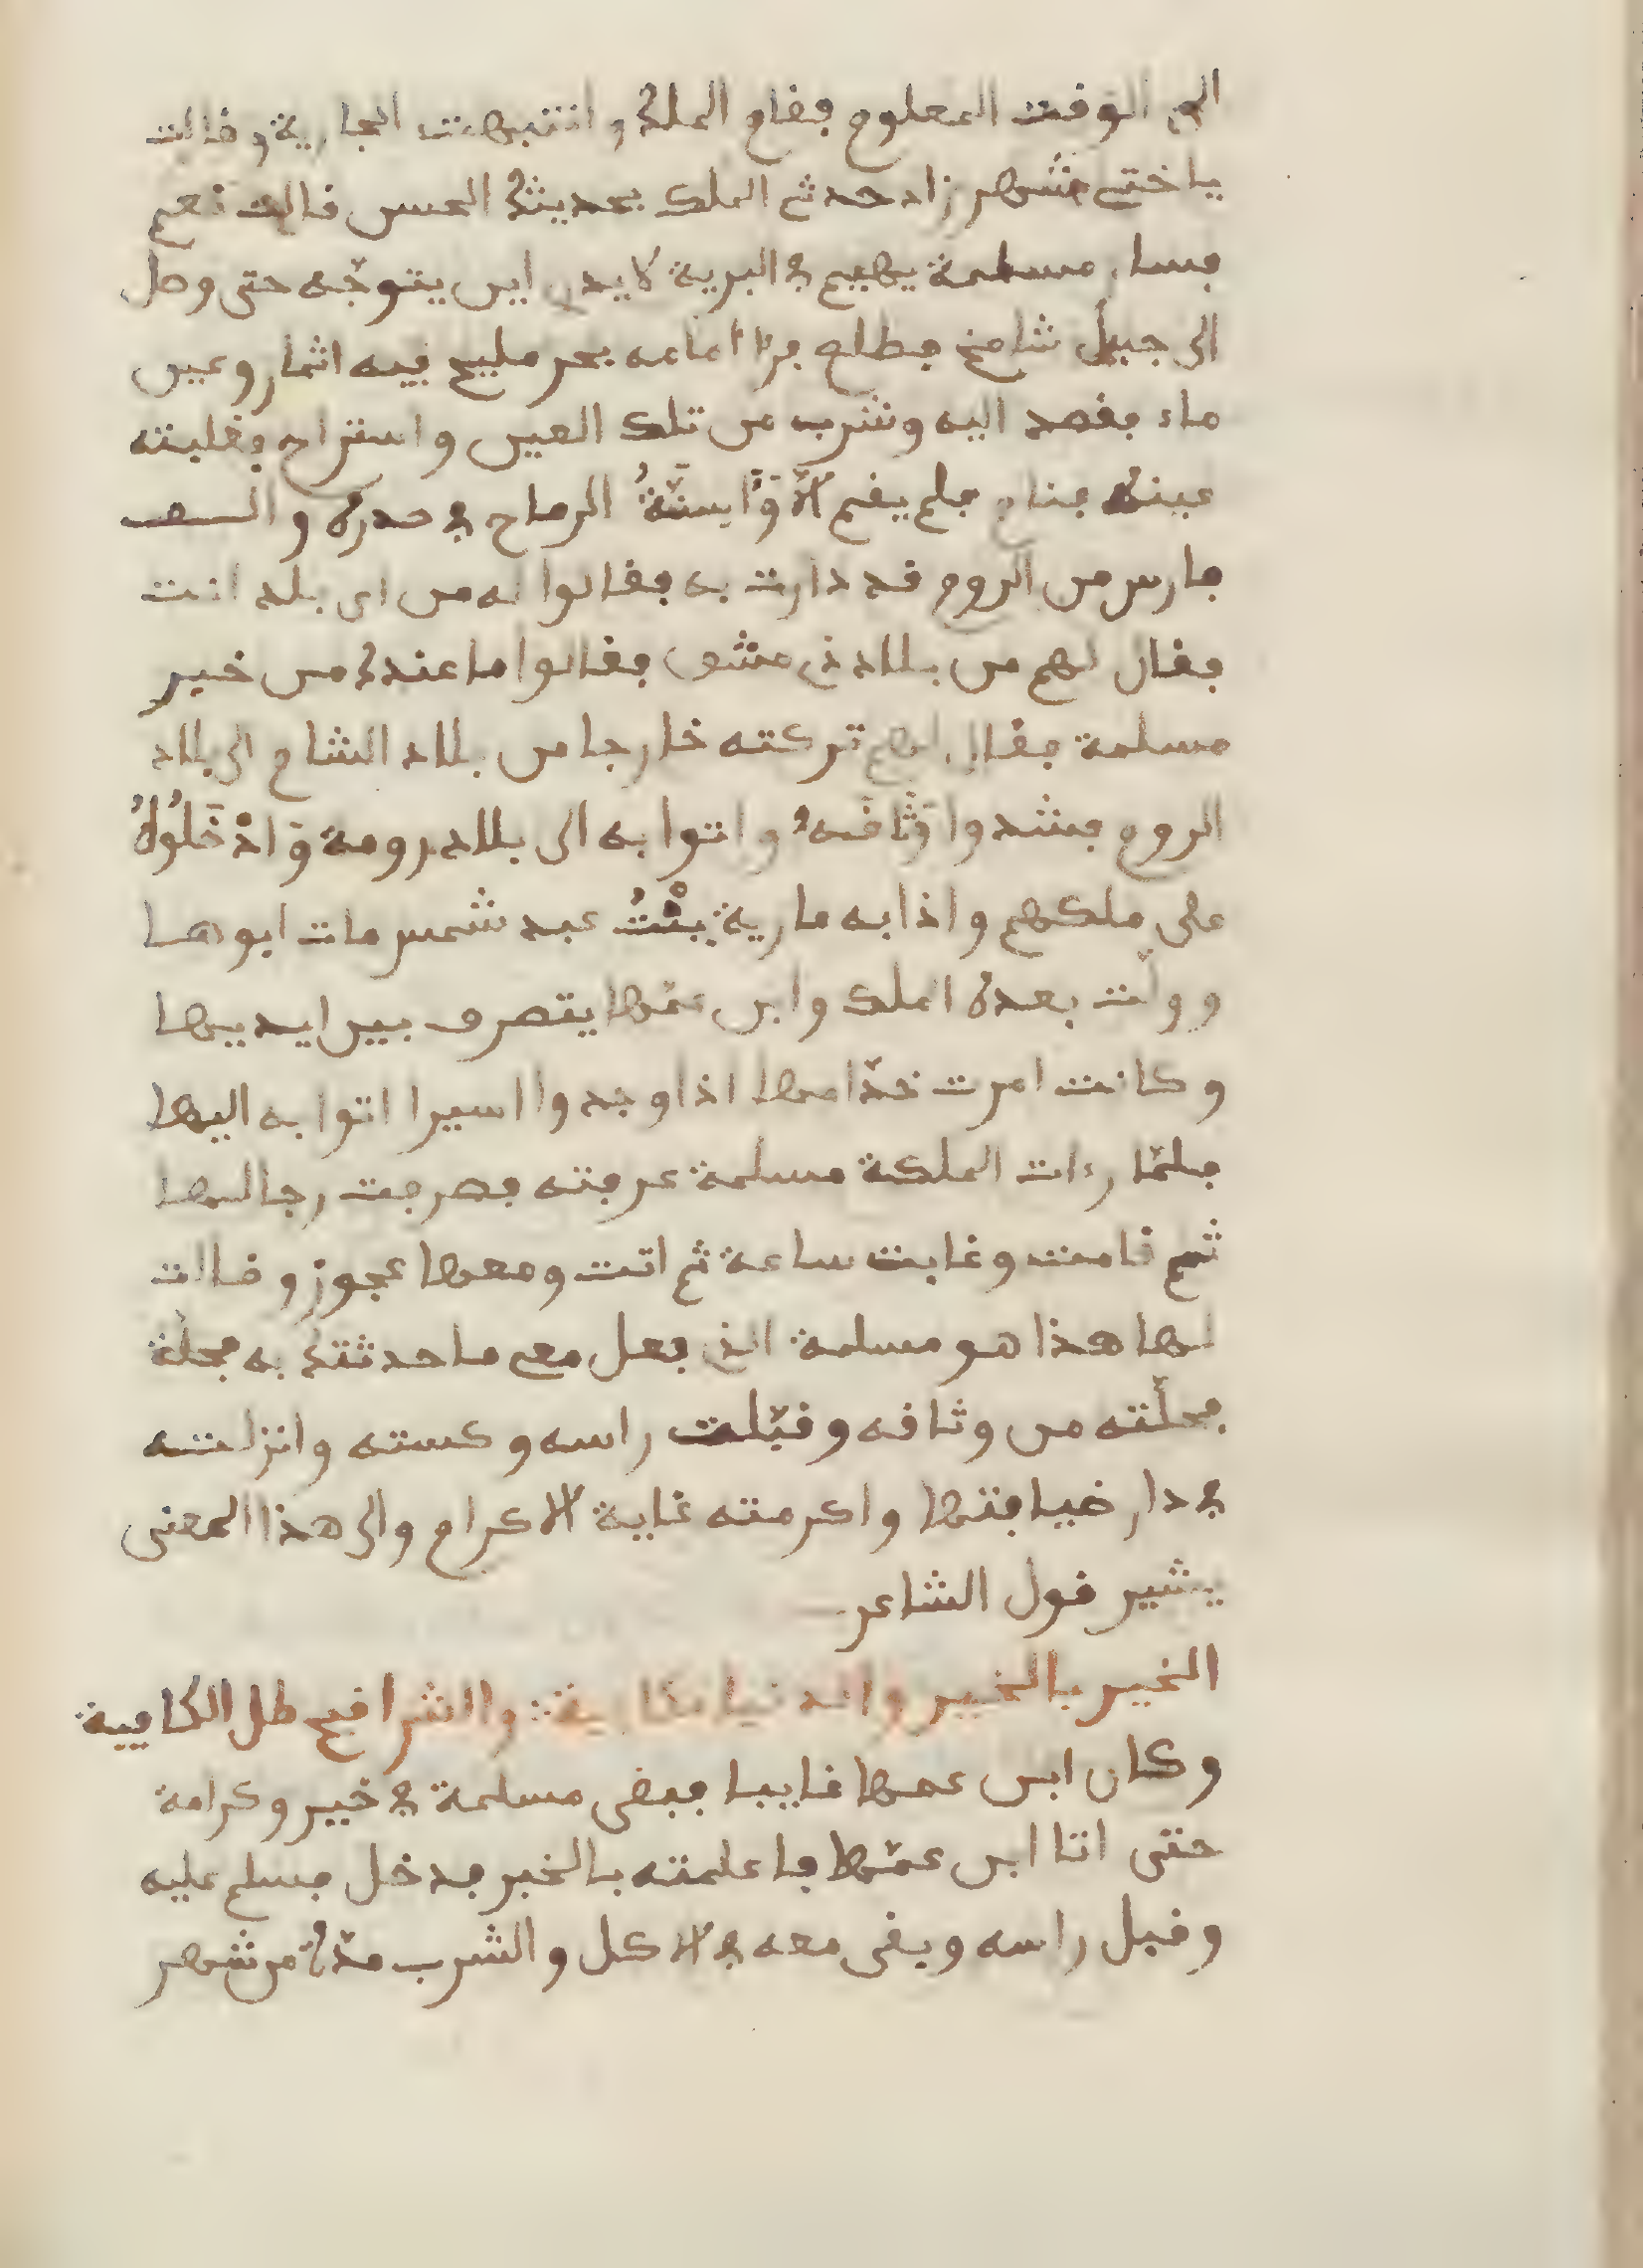 الى الوقت المعلوم فقام الملك وانتبهت الجارية وقالت
ياختي شهرزاد حدثي الملك بحديثك الحسن قالت نعم
فسار مسلمة يهيم في البرية لا يدري اين يتوجّه حتى وصل
الى جبل شامخ فطلع فرءا امامه بحر مليح فيه اثمار وعين
ماء فقصد اليه وشرب من تلك العين واستراح فغلبته
عينه فنام فلم يقم الّا وَّاسِنَّةُ الرماح في صدره والـف
فارس من الروم قد دارت به فقالوا له من اي بلد انت
فقال لهم من بلاد دمشق فقالوا ما عندك من خبر
مسلمة فقال لهم تركته خارجا من بلاد الشام الى بلاد
الروم فشدوا وَثَاقَهُ واتوا به الى بلاد رومة وَادْخَلُوهُ
على ملكهم واذا به مارية بِنْتُ عبد شمس مات ابوها
وولّت بعده الملك وابن عمّها يتصرف بين ايديها
وكانت امرت خدّامها اذا وجدوا اسيرا اتوا به اليها
فلمّا رءات الملكة مسلمة عرفته فصرفت رجالها
ثم قامت وغابت ساعة ثم اتت ومعها عجوز وقالت
لها هذا هو مسلمة الذي فعل معي ما حدثتك به فحلّة
فحلّته من وثاقه وقبّلت راسه وكسته وانزلته
في دار ضيافتها واكرمته غاية الاكرام والى هذا المعنى
يشير قول الشاعر
الخير بالخير والدنيا مكافية والشر اقبح كل الكافية
وكان ابن عمها غايبا فبقى مسلمة في خير وكرامة
حتى اتا ابن عمّها فاعلمته بالخبر فدخل فسلم عليه
وقبل راسه وبقى معه في الاكل والشرب مدّة من شهر